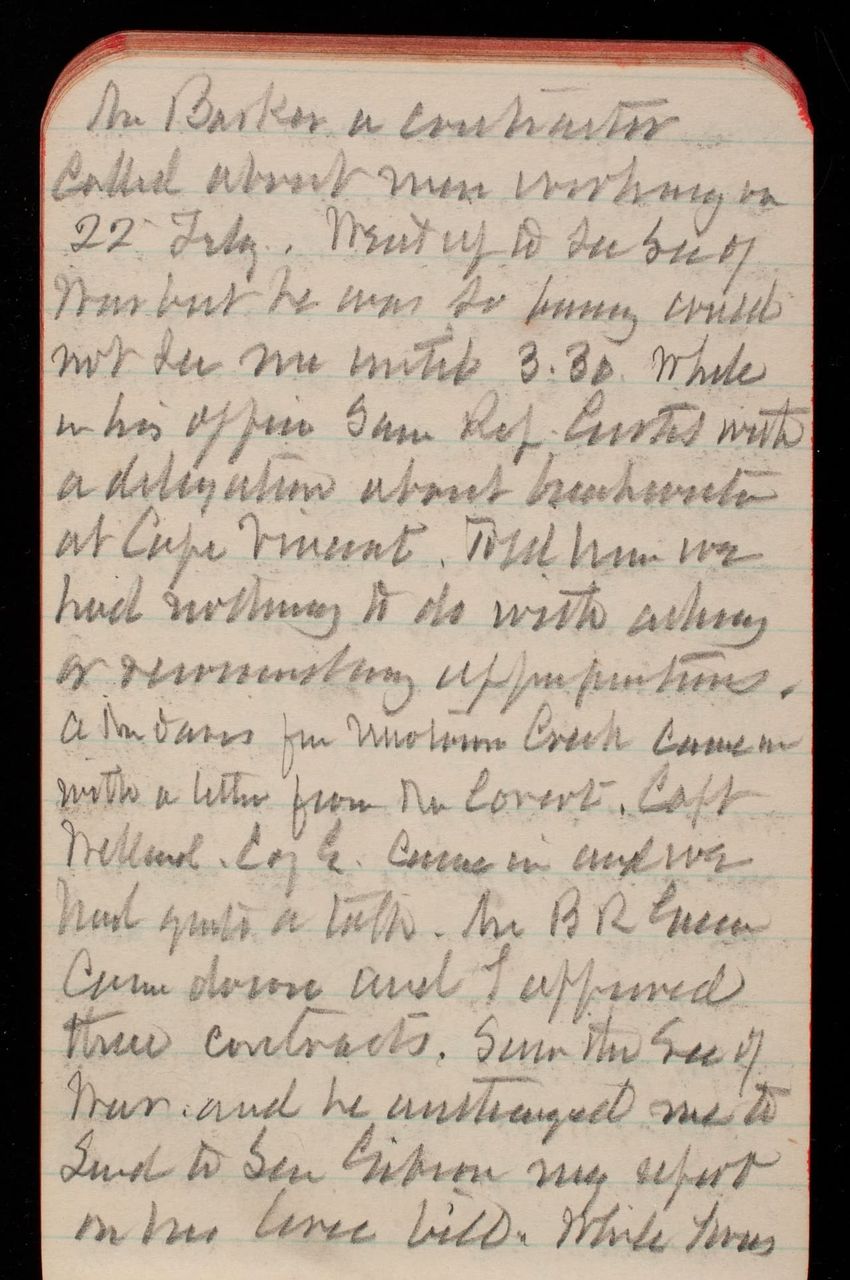 Mr Barker a contractor
Called about men working on
22 Feby. Went up to see Sec of
War but he was so busy could
not see me until 3.30. While
in his office Saw Rep. Curtis with
a delegation about breakwater
at Cape Vincent. Told him we
had nothing to do with asking
or recommending appropriations.
A Mr Davis from Newtown Creek came in
with a letter from Mr Covert. Capt
Willard. C of E. Came in and we
had quite a talk. Mr B R Green
Came down and I approved
three contracts. Saw the Sec of
War. and he authorized me to
Send to Sen Gibson my report
on his levee bill. While I was